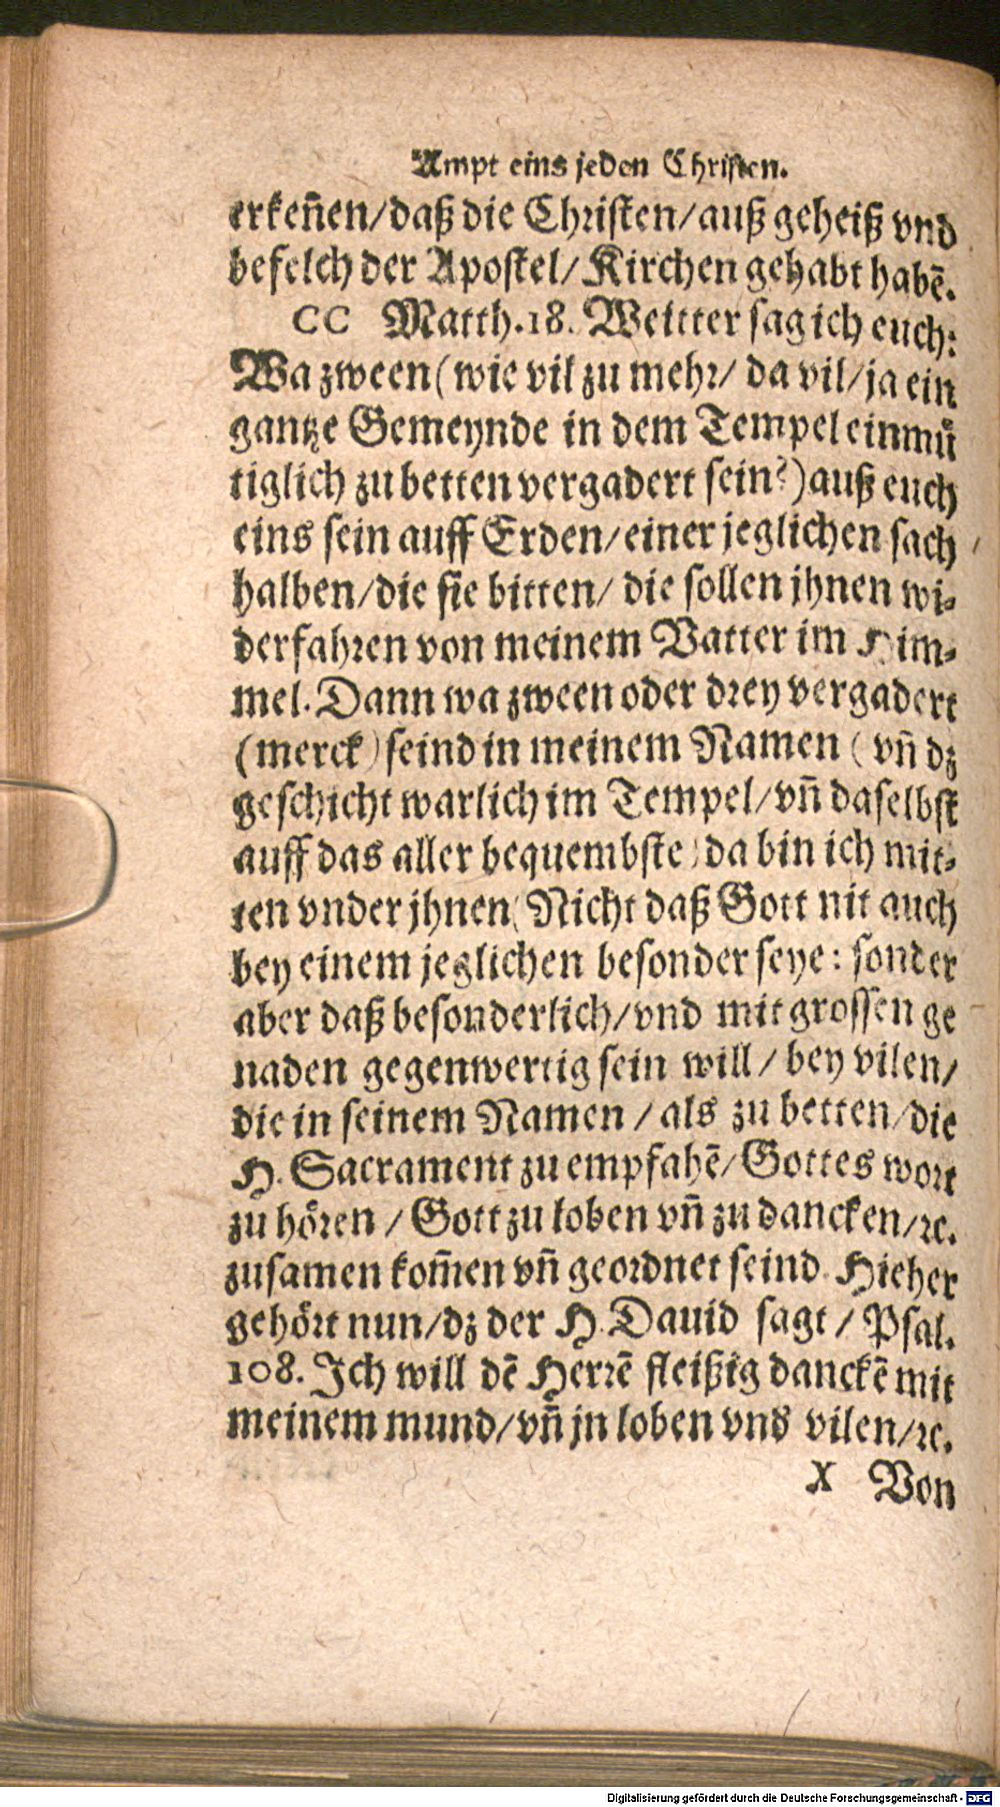 Ampt eins jeden Christen.
erkeñen/daß die Christen/auß geheiß vnd
befelch der Apostel/Kirchen gehabt habẽ.
CC Matth.18. Weitter sag ich euch:
Wa zween (wie vil zu mehr/ da vil/ja ein
gantze Gemeynde in dem Tempel einmuͤ
tiglich zu betten vergadert sein?) auß euch
eins sein auff Erden/einer jeglichen sach
halben/die sie bitten/ die sollen jhnen wi-
derfahren von meinem Vatter im Him-
mel. Dann wa zween oder drey vergadert
(merck) seind in meinem Namen (vñ dz
geschicht warlich im Tempel/vñ daselbst
auff das aller bequembste) da bin ich mit-
ten vnder jhnen( Nicht daß Gott nit auch
bey einem jeglichen besonder seye: sonder
aber daß besonderlich/vnd mit grossen ge
naden gegenwertig sein will/ bey vilen/
die in seinem Namen/als zu betten/die
H. Sacrament zu empfahẽ/Gottes wort
zu hoͤren/ Gott zu loben vñ zu dancken/ꝛc.
zusamen kom̃en vñ geordnet seind. Hieher
gehoͤrt nun/dz der H. Dauid sagt/ Psal.
108. Ich will dẽ Herrẽ fleißig danckẽ mit
meinem mund/vñ jn loben vnd vilen/ꝛc.
X Von
Digitalisierung gefördert durch die Deutsche Forschungsgemeinschaft - DFG